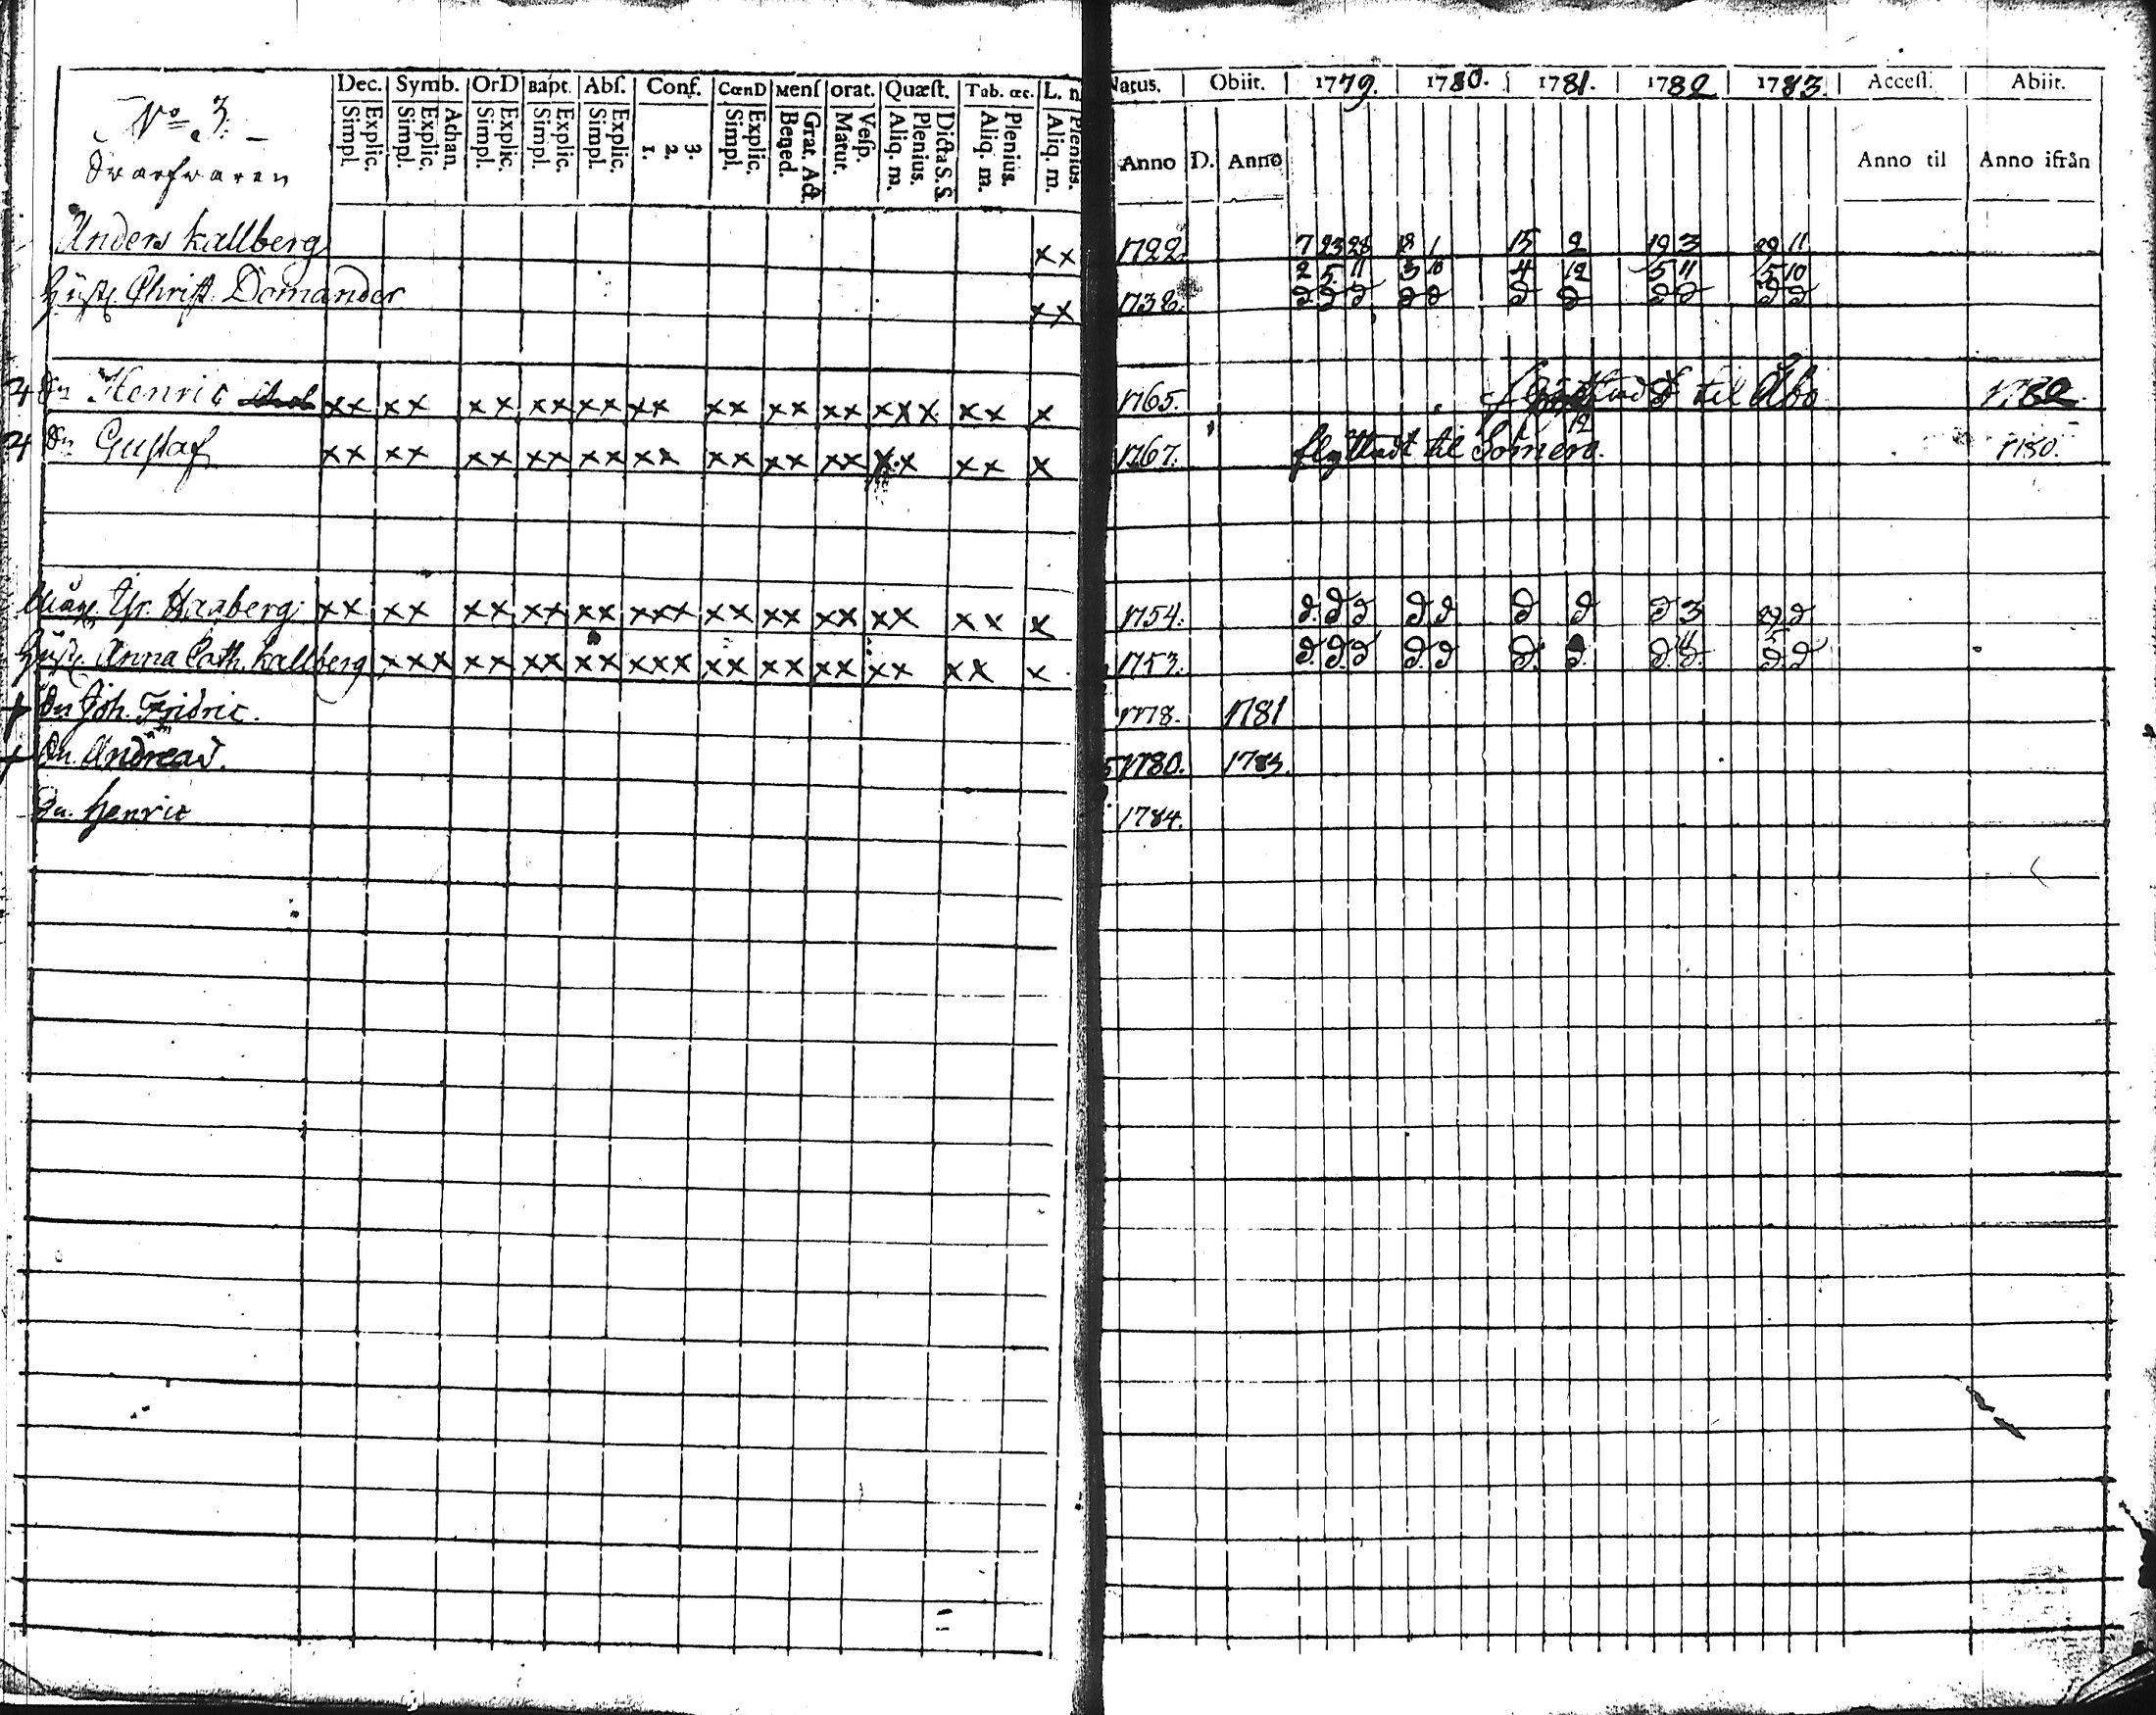 Dec. Symb. OrD Bapt. Abſ. Conf. CœnD Menſ Orat. Quæſt. Tab. œc. L. n.
Simpl. Explic. Simpl. Explic. Athan. Simpl. Explic. Simpl. Explic. Simpl. Explic. 1. 2. 3. Simpl. Explic. Bened. Grat. Act. Matut. Veſp. Aliq. m. Plenius. Dicta S. S. Aliq. m. Plenius. Aliq. m. Plenius.
Natus. Obiit. 1779. 1780. 1781. 1782 1783. Acceſſ. Abiit.
Anno D. Anno Anno til Anno ifrån
No 3.
Anders Kallberg xx 1722 7 23 28 18 1 15 2 19 3 29 11
2 5 11 3 10 4 12 5 11 5 10
Hust. Christ. Domander xx 1738. D D D D D D D D D D D
Sn Henric xx xx xx xx xx xx xx xx xx xxx xx x 1765. flyttadt til Åbo 1782
Sn Gustaf xx xx xx xx xx xx xx xx xx xx xx x 1767. flyttadt til Somero. 1780.
Måg. Gr. Haaberg xx xx xx xx xx xxx xx xx xx xx xx x 1754. D D D D D D D D 3 29 D
Hust. Anna Cath. Kallberg xxx xx xx xx xxx xx xx xx xx xx x 1753. D D D D D D D D D D D
Sn Joh. Fridric. 1778. 1781
Sn. Andreas. 1780. 1783.
Sn. Henric 1784.